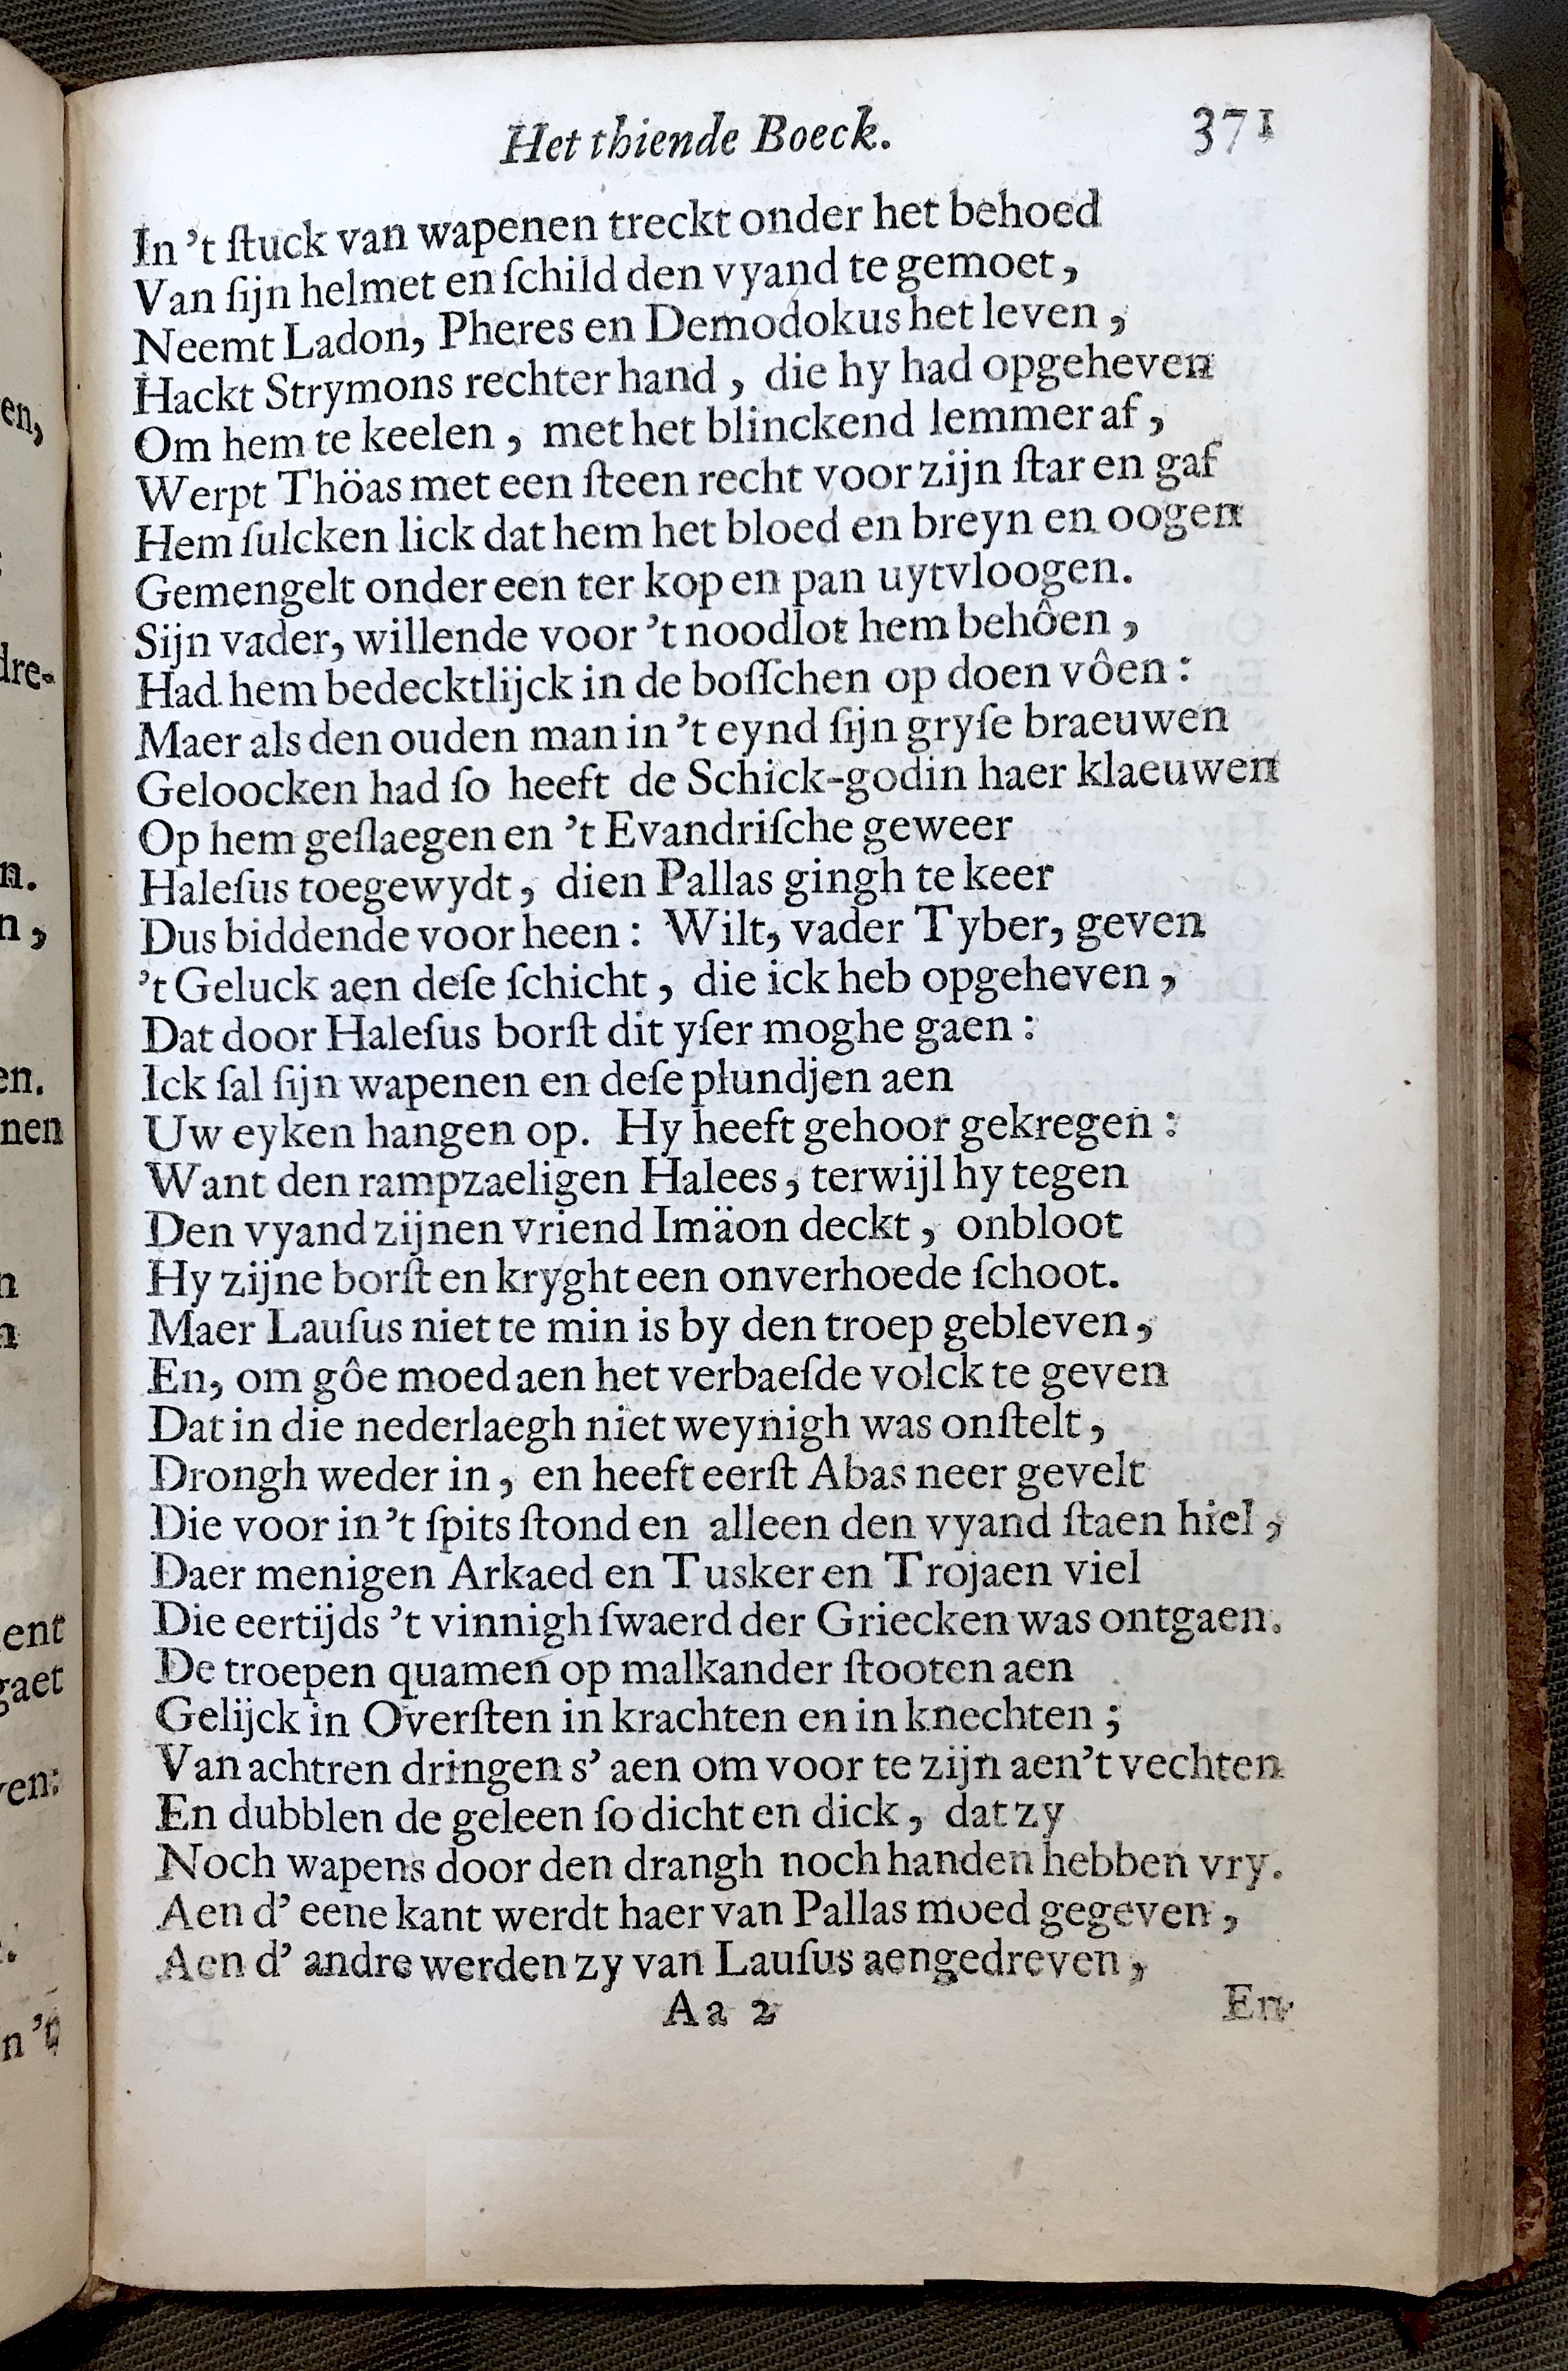 Het thiende Boeck. 371
In 't ſtuck van wapenen treckt onder het behoed
Van ſijn helmet en ſchild den vyand te gemoet,
Neemt Ladon, Pheres en Demodokus het leven,
Hackt Strymons rechter hand, die hy had opgeheven
Om hem te keelen, met het blinckend lemmer af,
Werpt Thöas met een ſteen recht voor zijn ſtar en gaf
Hem ſulcken lick dat hem het bloed en breyn en oogen
Gemengelt onder een ter kop en pan uytvloogen.
Sijn vader, willende voor 't noodlot hem behôen,
Had hem bedecktlijck in de boſſchen op doen vôen:
Maer als den ouden man in 't eynd ſijn gryſe braeuwen
Geloocken had ſo heeft de Schick-godin haer klaeuwen
Op hem geſlaegen en 't Evandriſche geweer
Haleſus toegewydt, dien Pallas gingh te keer
Dus biddende voor heen: Wilt, vader Tyber, geven
't Geluck aen deſe ſchicht, die ick heb opgeheven,
Dat door Haleſus borſt dit yſer moghe gaen:
Ick ſal ſijn wapenen en deſe plundjen aen
Uw eyken hangen op. Hy heeft gehoor gekregen:
Want den rampzaeligen Halees, terwijl hy tegen
Den vyand zijnen vriend Imäon deckt, onbloot
Hy zijne borſt en kryght een onverhoede ſchoot.
Maer Lauſus niet te min is by den troep gebleven,
En, om gôe moed aen het verbaeſde volck te geven
Dat in die nederlaegh niet weynigh was onſtelt,
Drongh weder in, en heeft eerſt Abas neer gevelt
Die voor in 't ſpits ſtond en alleen den vyand ſtaen hiel,
Daer menigen Arkaed en Tusker en Trojaen viel
Die eertijds 't vinnigh ſwaerd der Griecken was ontgaen.
De troepen quamen op malkander ſtooten aen
Gelijck in Overſten in krachten en in knechten;
Van achtren dringen s' aen om voor te zijn aen 't vechten
En dubblen de geleen ſo dicht en dick, dat zy
Noch wapens door den drangh noch handen hebben vry.
Aen d' eene kant werdt haer van Pallas moed gegeven,
Aen d' andre werden zy van Lauſus aengedreven,
Aa 2 En